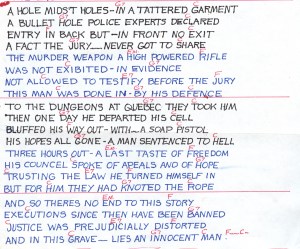 A HOLE MIDST HOLES-IN A TATTERED GARMENT
A BULLET HOLE POLICE EXPERTS DECLARED
ENTRY IN BACK BUT-IN FRONT NO EXIT
A FACT THE JURY---NEVER GOT TO SHARE
THE MURDER WEAPON A HIGH POWERED RIFLE
WAS NOT EXIBITED-IN EVIDENCE
NOT ALLOWED TO TESTIFY BEFORE THE JURY
THIS MAN WAS DONE IN-BY HIS DEFENCE
TO THE DUNGEONS AT QUEBEC THEY TOOK HIM
THEN ONE DAY HE DEPARTED HIS CELL
BLUFFED HIS WAY OUT-WITH--A SOAP PISTOL
HIS HOPES ALL GONE-A MAN SENTENCED TO HELL
THREE HOURS OUT-A LAST TASTE OF FREEDOM
HIS COUNCIL SPOKE OF APEALS AND OF HOPE
TRUSTING THE LAW HE TURNED HIMSELF IN
BUT FOR HIM THEY HAD KNOTED THE ROPE
AND SO THERES NO END TO THIS STORY
EXECUTIONS SINCE THEN HAVE BEEN BANNED
JUSTICE WAS PREJUDICIALLY DISTORTED
AND IN THIS GRAVE--LIES AN INNOCENT MAN.